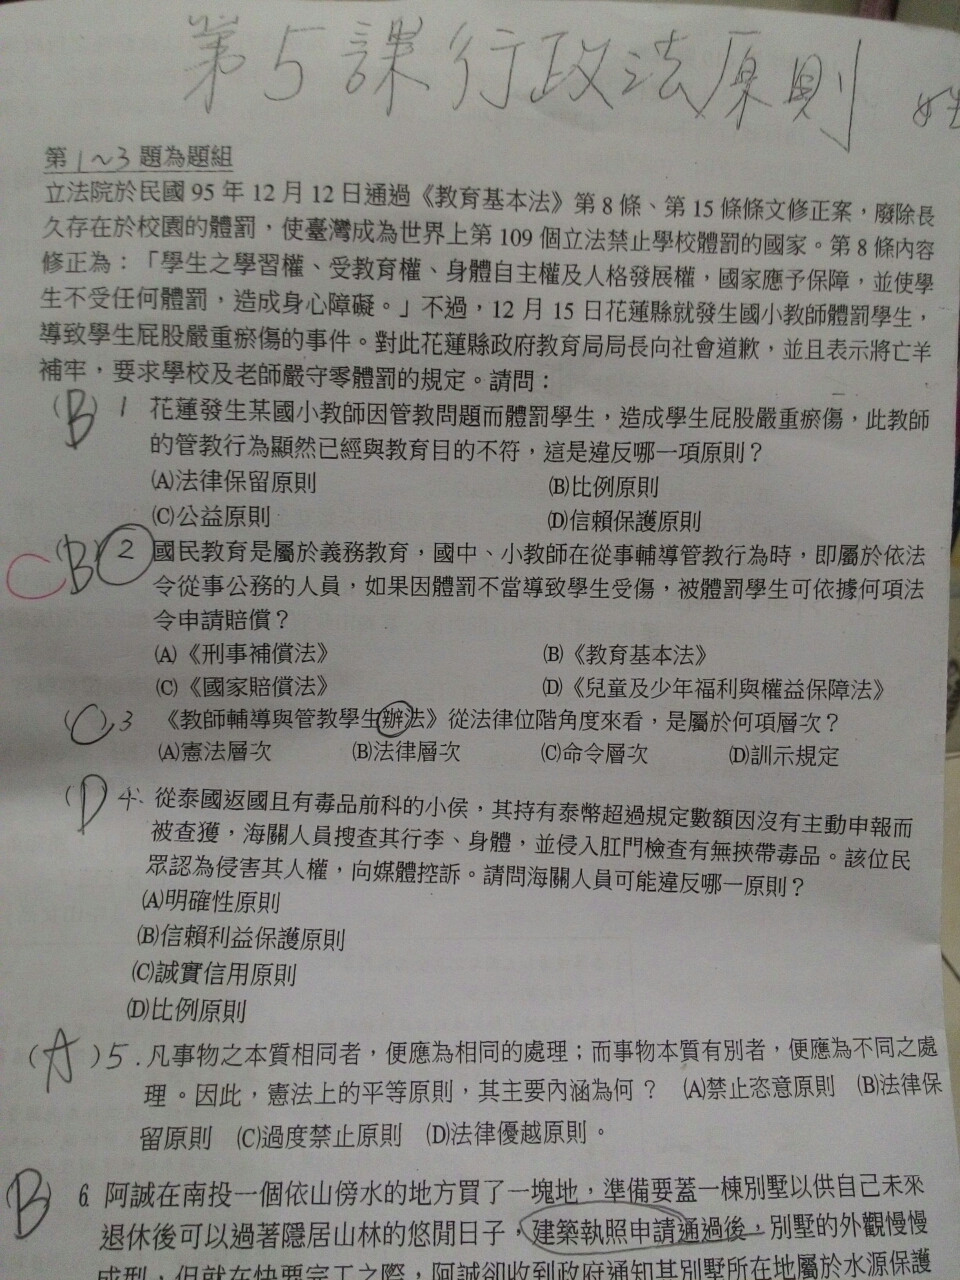 第5課行政法原則 姓
第1~3題為題組
立法院於民國 95 年 12 月 12 日通過《教育基本法》第 8 條、第 15 條條文修正案，廢除長
久存在於校園的體罰，使臺灣成為世界上第 109 個立法禁止學校體罰的國家。第 8 條內容
修正為：「學生之學習權、受教育權、身體自主權及人格發展權，國家應予保障，並使學
生不受任何體罰，造成身心障礙。」不過，12 月 15 日花蓮縣就發生國小教師體罰學生，
導致學生屁股嚴重瘀傷的事件。對此花蓮縣政府教育局局長向社會道歉，並且表示將亡羊
補牢，要求學校及老師嚴守零體罰的規定。請問：
(B) 1 花蓮發生某國小教師因管教問題而體罰學生，造成學生屁股嚴重瘀傷，此教師
的管教行為顯然已經與教育目的不符，這是違反哪一項原則？
(A)法律保留原則 (B)比例原則
(C)公益原則 (D)信賴保護原則
C (B) 2 國民教育是屬於義務教育，國中、小教師在從事輔導管教行為時，即屬於依法
令從事公務的人員，如果因體罰不當導致學生受傷，被體罰學生可依據何項法
令申請賠償？
(A)《刑事補償法》 (B)《教育基本法》
(C)《國家賠償法》 (D)《兒童及少年福利與權益保障法》
(C) 3 《教師輔導與管教學生辦法》從法律位階角度來看，是屬於何項層次？
(A)憲法層次 (B)法律層次 (C)命令層次 (D)訓示規定
(D) 4、從泰國返國且有毒品前科的小侯，其持有泰幣超過規定數額因沒有主動申報而
被查獲，海關人員搜查其行李、身體，並侵入肛門檢查有無挾帶毒品。該位民
眾認為侵害其人權，向媒體控訴。請問海關人員可能違反哪一原則？
(A)明確性原則
(B)信賴利益保護原則
(C)誠實信用原則
(D)比例原則
(A) 5.凡事物之本質相同者，便應為相同的處理；而事物本質有別者，便應為不同之處
理。因此，憲法上的平等原則，其主要內涵為何？ (A)禁止恣意原則 (B)法律保
留原則 (C)過度禁止原則 (D)法律優越原則。
(B) 6. 阿誠在南投一個依山傍水的地方買了一塊地，準備要蓋一棟別墅以供自己未來
退休後可以過著隱居山林的悠閒日子，建築執照申請通過後，別墅的外觀慢慢
成型，但就在快要完工之際，阿誠卻收到政府通知其別墅所在地屬於水源保護